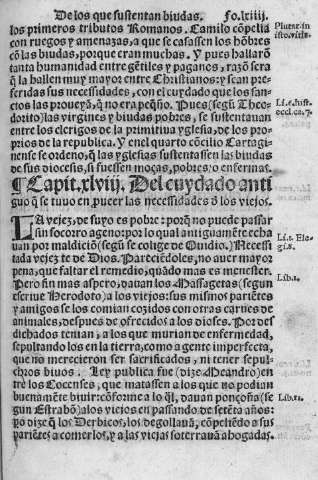 De los que sustentan biudas. Fo.lxiiij.
los primeros tributos Romanos. Camilo cõpelia
con ruegos y amenazas, a que se casassen los hõbres
cõ las biudas, porque eran muchas. Y pues hallarõ
tanta humanidad entre gẽtiles y paganos, razõ sera
q̃ la hallen muy mayor entre Christianos: y sean pre-
feridas sus necessidades, con el cuydado que los san-
ctos las proueyã, q̃ no era pequeño. Pues (segũ Theo-
dorito) las virgines y biudas pobres, se sustentauan
entre los clerigos de la primitiua yglesia, de los pro-
prios de la republica. Y en el quarto cõcilio Cartagi-
nense se ordeno, q̃ las yglesias sustentassen las biudas
de sus diocesis, si fuessen moças, pobres o enfermas.
Plutar. in
isto. vitis.
Li.6. hist.
eccl. ca.7.
¶ Capit. xlviij. Del cuydado anti
guo q̃ se tuuo en proueer las necessidades õ los viejos.
LA vejez, de suyo es pobre: porq̃ no puede passar
sin socorro ageno: por lo qual antiguamẽte echa
uan por maldiciõ (segũ se colige de Ouidio,) Necessi
tada vejez te de Dios. Pareciẽdoles, no auer mayor
pena, que faltar el remedio, quãdo mas es menester.
Pero sin mas aspero, dauan los Massagetas (segun
escriue Herodoto) a los viejos: sus mismos pariẽtes
y amigos se los comian cozidos con otras carnes de
animales, despues de ofrecidos a los dioses. Por des
dichados tenian, a los que murian de enfermedad,
sepultando los en la tierra, como a gente imperfecta,
que no merecieron ser sacrificados, ni tener sepul-
chros biuos. Ley publica fue (dize Meandro) en
tre los Coenses, que matassen a los que no podian
buenamẽte biuir: cõforme a lo q̃l, dauan ponçoña (se
gun Estrabõ) a los viejos en passando de setẽta años:
po dize q̃ los Derbicos, los degollauã, cõpeliẽdo a sus
pariẽtes a comerlos, y a las viejas soterrauã ahogadas.
Li.1. Ele
gi.8.
Lib.1.
Lib.11.